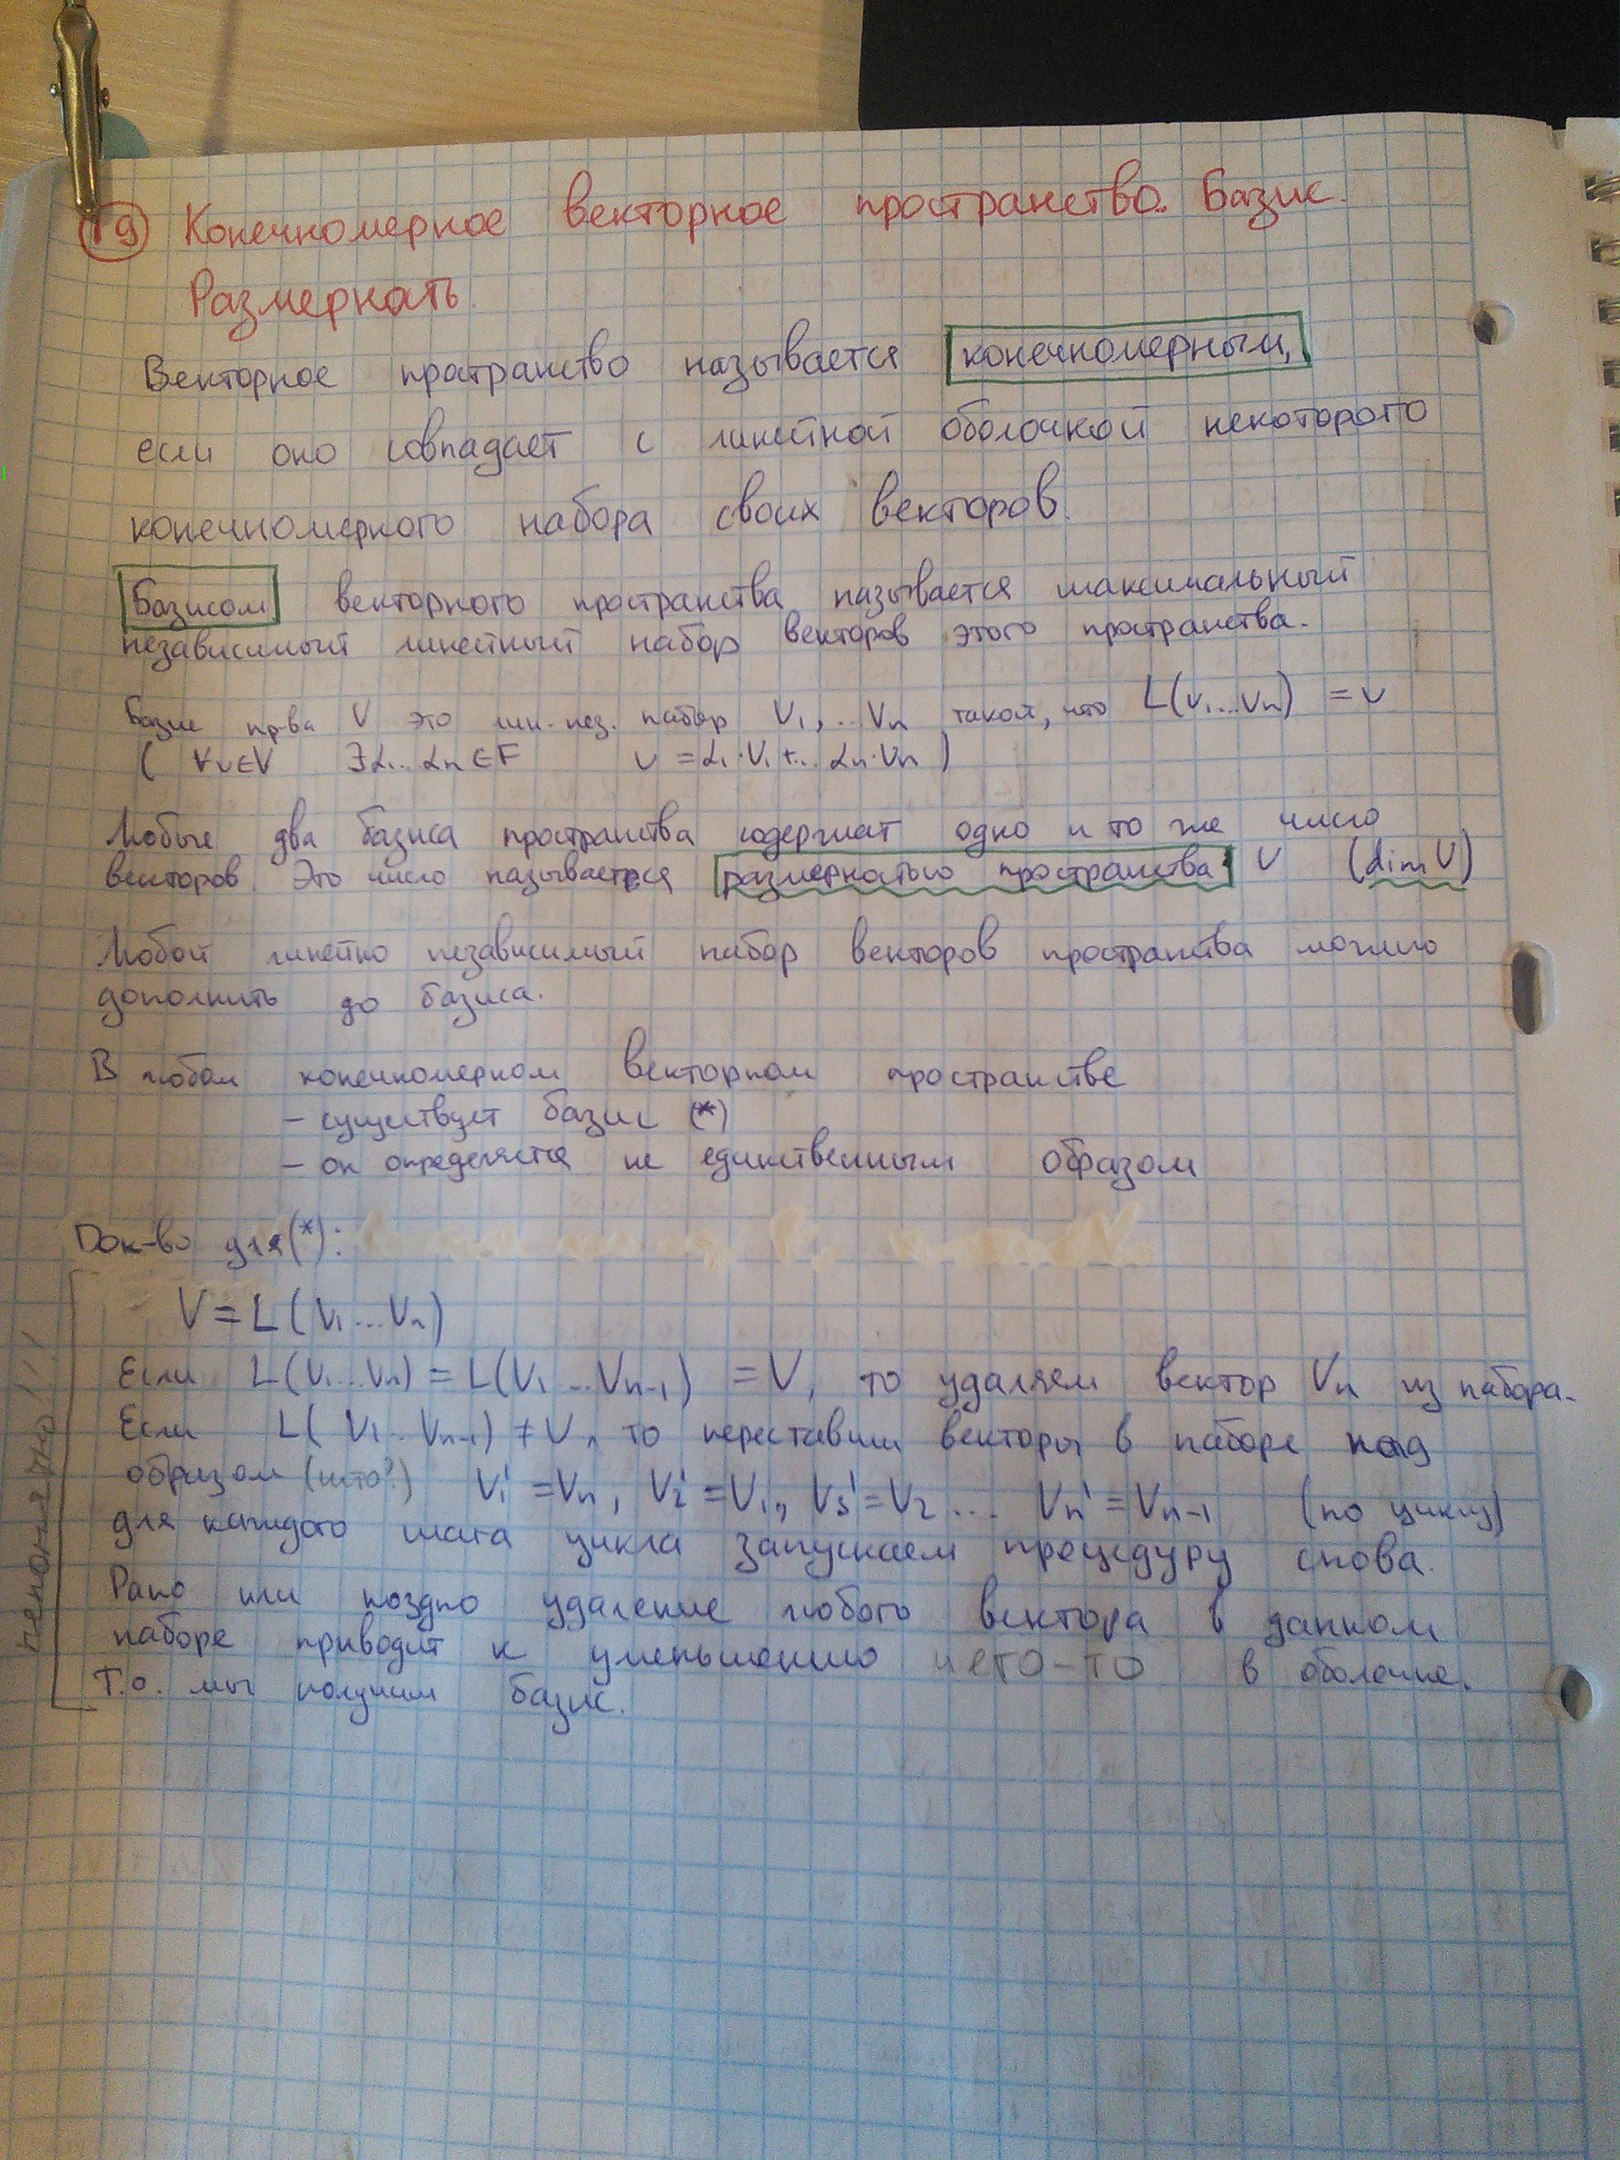 19 Конечномерное векторное пространство. Базис.
Размерность.
Векторное пратранство называется конечномерным,
если оно совпадает с линейной оболочкой некоторого
конечномерного набора своих векторов.
Базисом векторного пространства называется максимальный
независимый линейный набор векторов этого пространства.
Базис пр-ва V это лин. нез. набор V₁, .. Vₙ такой, что L(V₁...Vₙ) = V
( ∀v∈V ∃α₁...αₙ∈F v = α₁·V₁+...αₙ·Vₙ )
Любые два базиса пространства содержат одно и то же число
векторов. Это число называется размерностью пространства V (dim V)
Любой линейно независимый набор векторов пространства можно
дополнить до базиса.
В любом конечномерном векторном пространстве
- существует базис (*)
- он определяется не единственным образом
Док-во для(*):
V = L(V₁...Vₙ)
Если L(V₁...Vₙ) = L(V₁...Vₙ₋₁) = V, то удаляем вектор Vₙ из набора.
Если L(V₁...Vₙ₋₁) ≠ V, то переставим векторы в наборе
образом (што?) V₁' = Vₙ, V₂' = V₁, V₃' = V₂ ... Vₙ' = Vₙ₋₁ (по циклу)
для каждого шага цикла запускаем процедуру снова.
Рано или поздно удаление любого вектора в данном
наборе приводит к уменьшению чего-то в оболочке.
Т.о. мы получим базис.
непонятно!!!